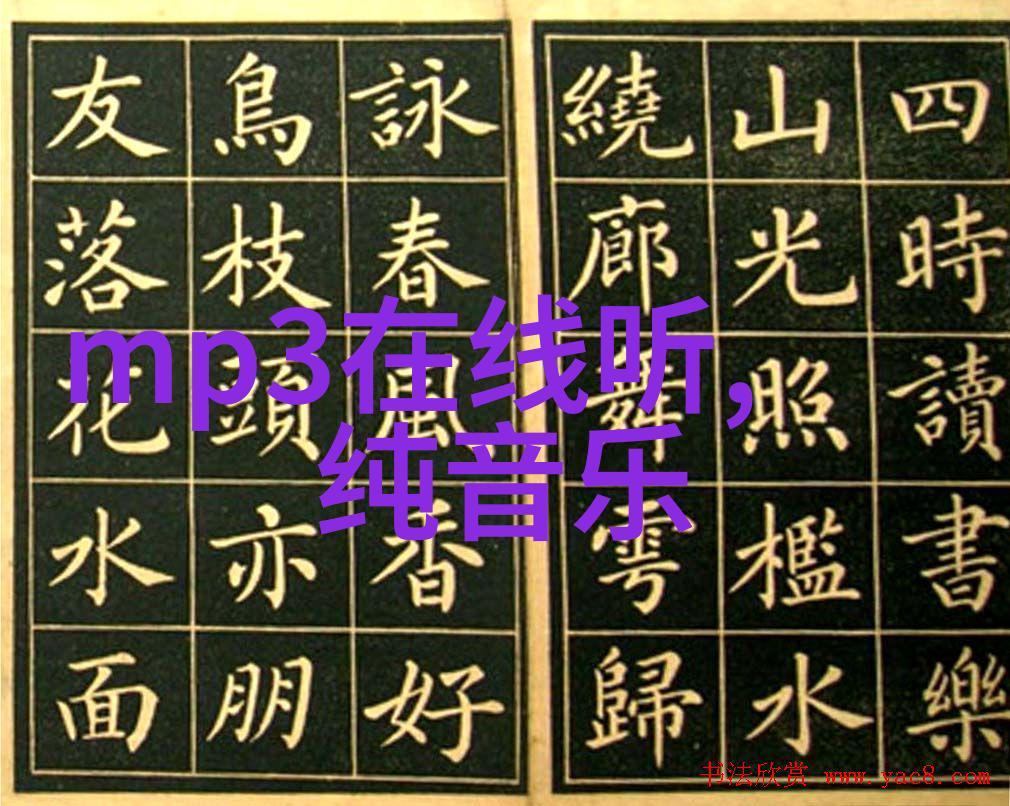 四時讀書樂
山光照檻水
繞廊舞雩歸
詠春風香好
鳥枝頭亦朋
友落花水面
mp3在线听,
纯音乐
书法欣赏 www.yac8.com